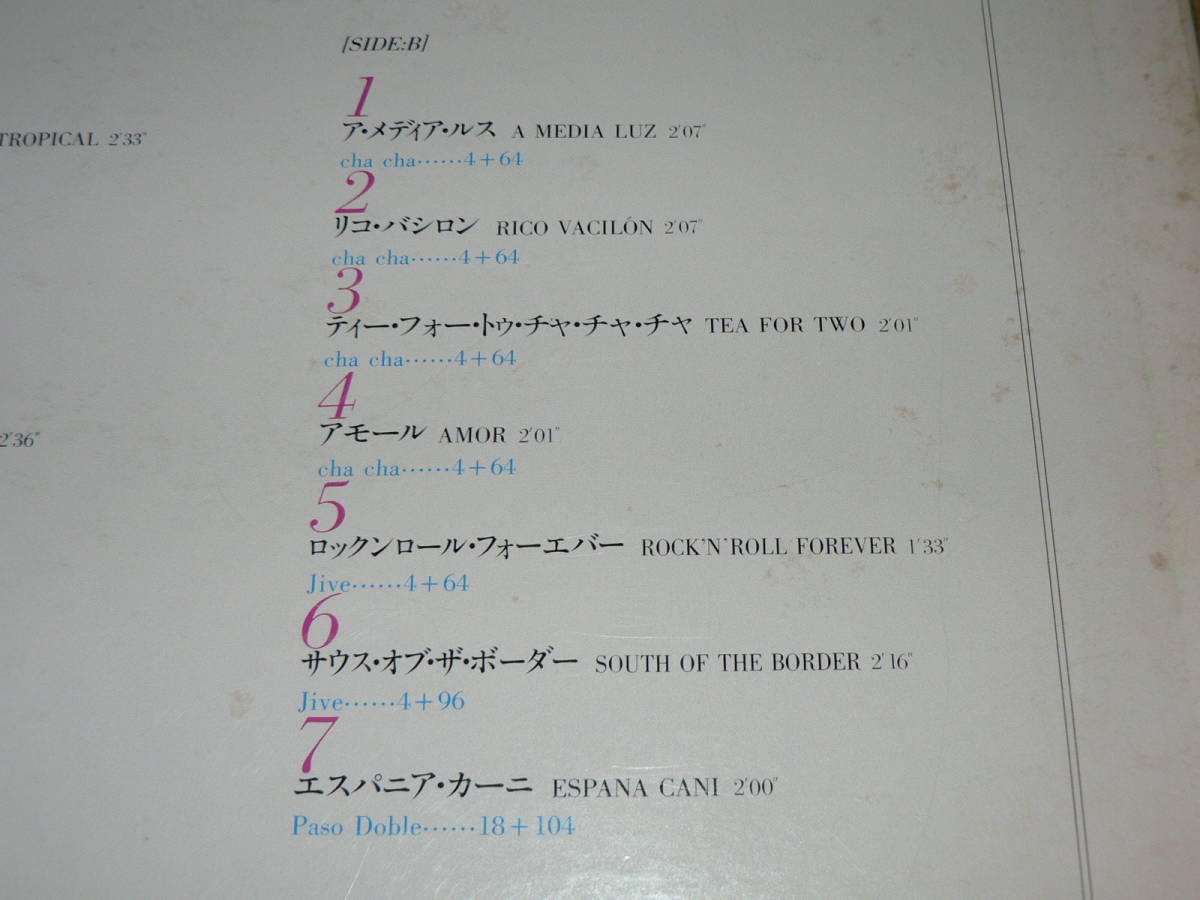 TROPICAL 2'33"
2'36"
[SIDE:B]
1
ア・メディア・ルス A MEDIA LUZ 2'07"
cha cha……4+64
2
リコ・バシロン RICO VACILÓN 2'07"
cha cha……4+64
3
ティー・フォー・トゥ・チャ・チャ・チャ TEA FOR TWO 2'01"
cha cha……4+64
4
アモール AMOR 2'01"
cha cha……4+64
5
ロックンロール・フォーエバー ROCK'N'ROLL FOREVER 1'33"
Jive……4+64
6
サウス・オブ・ザ・ボーダー SOUTH OF THE BORDER 2'16"
Jive……4+96
7
エスパニア・カーニ ESPANA CANI 2'00"
Paso Doble……18+104